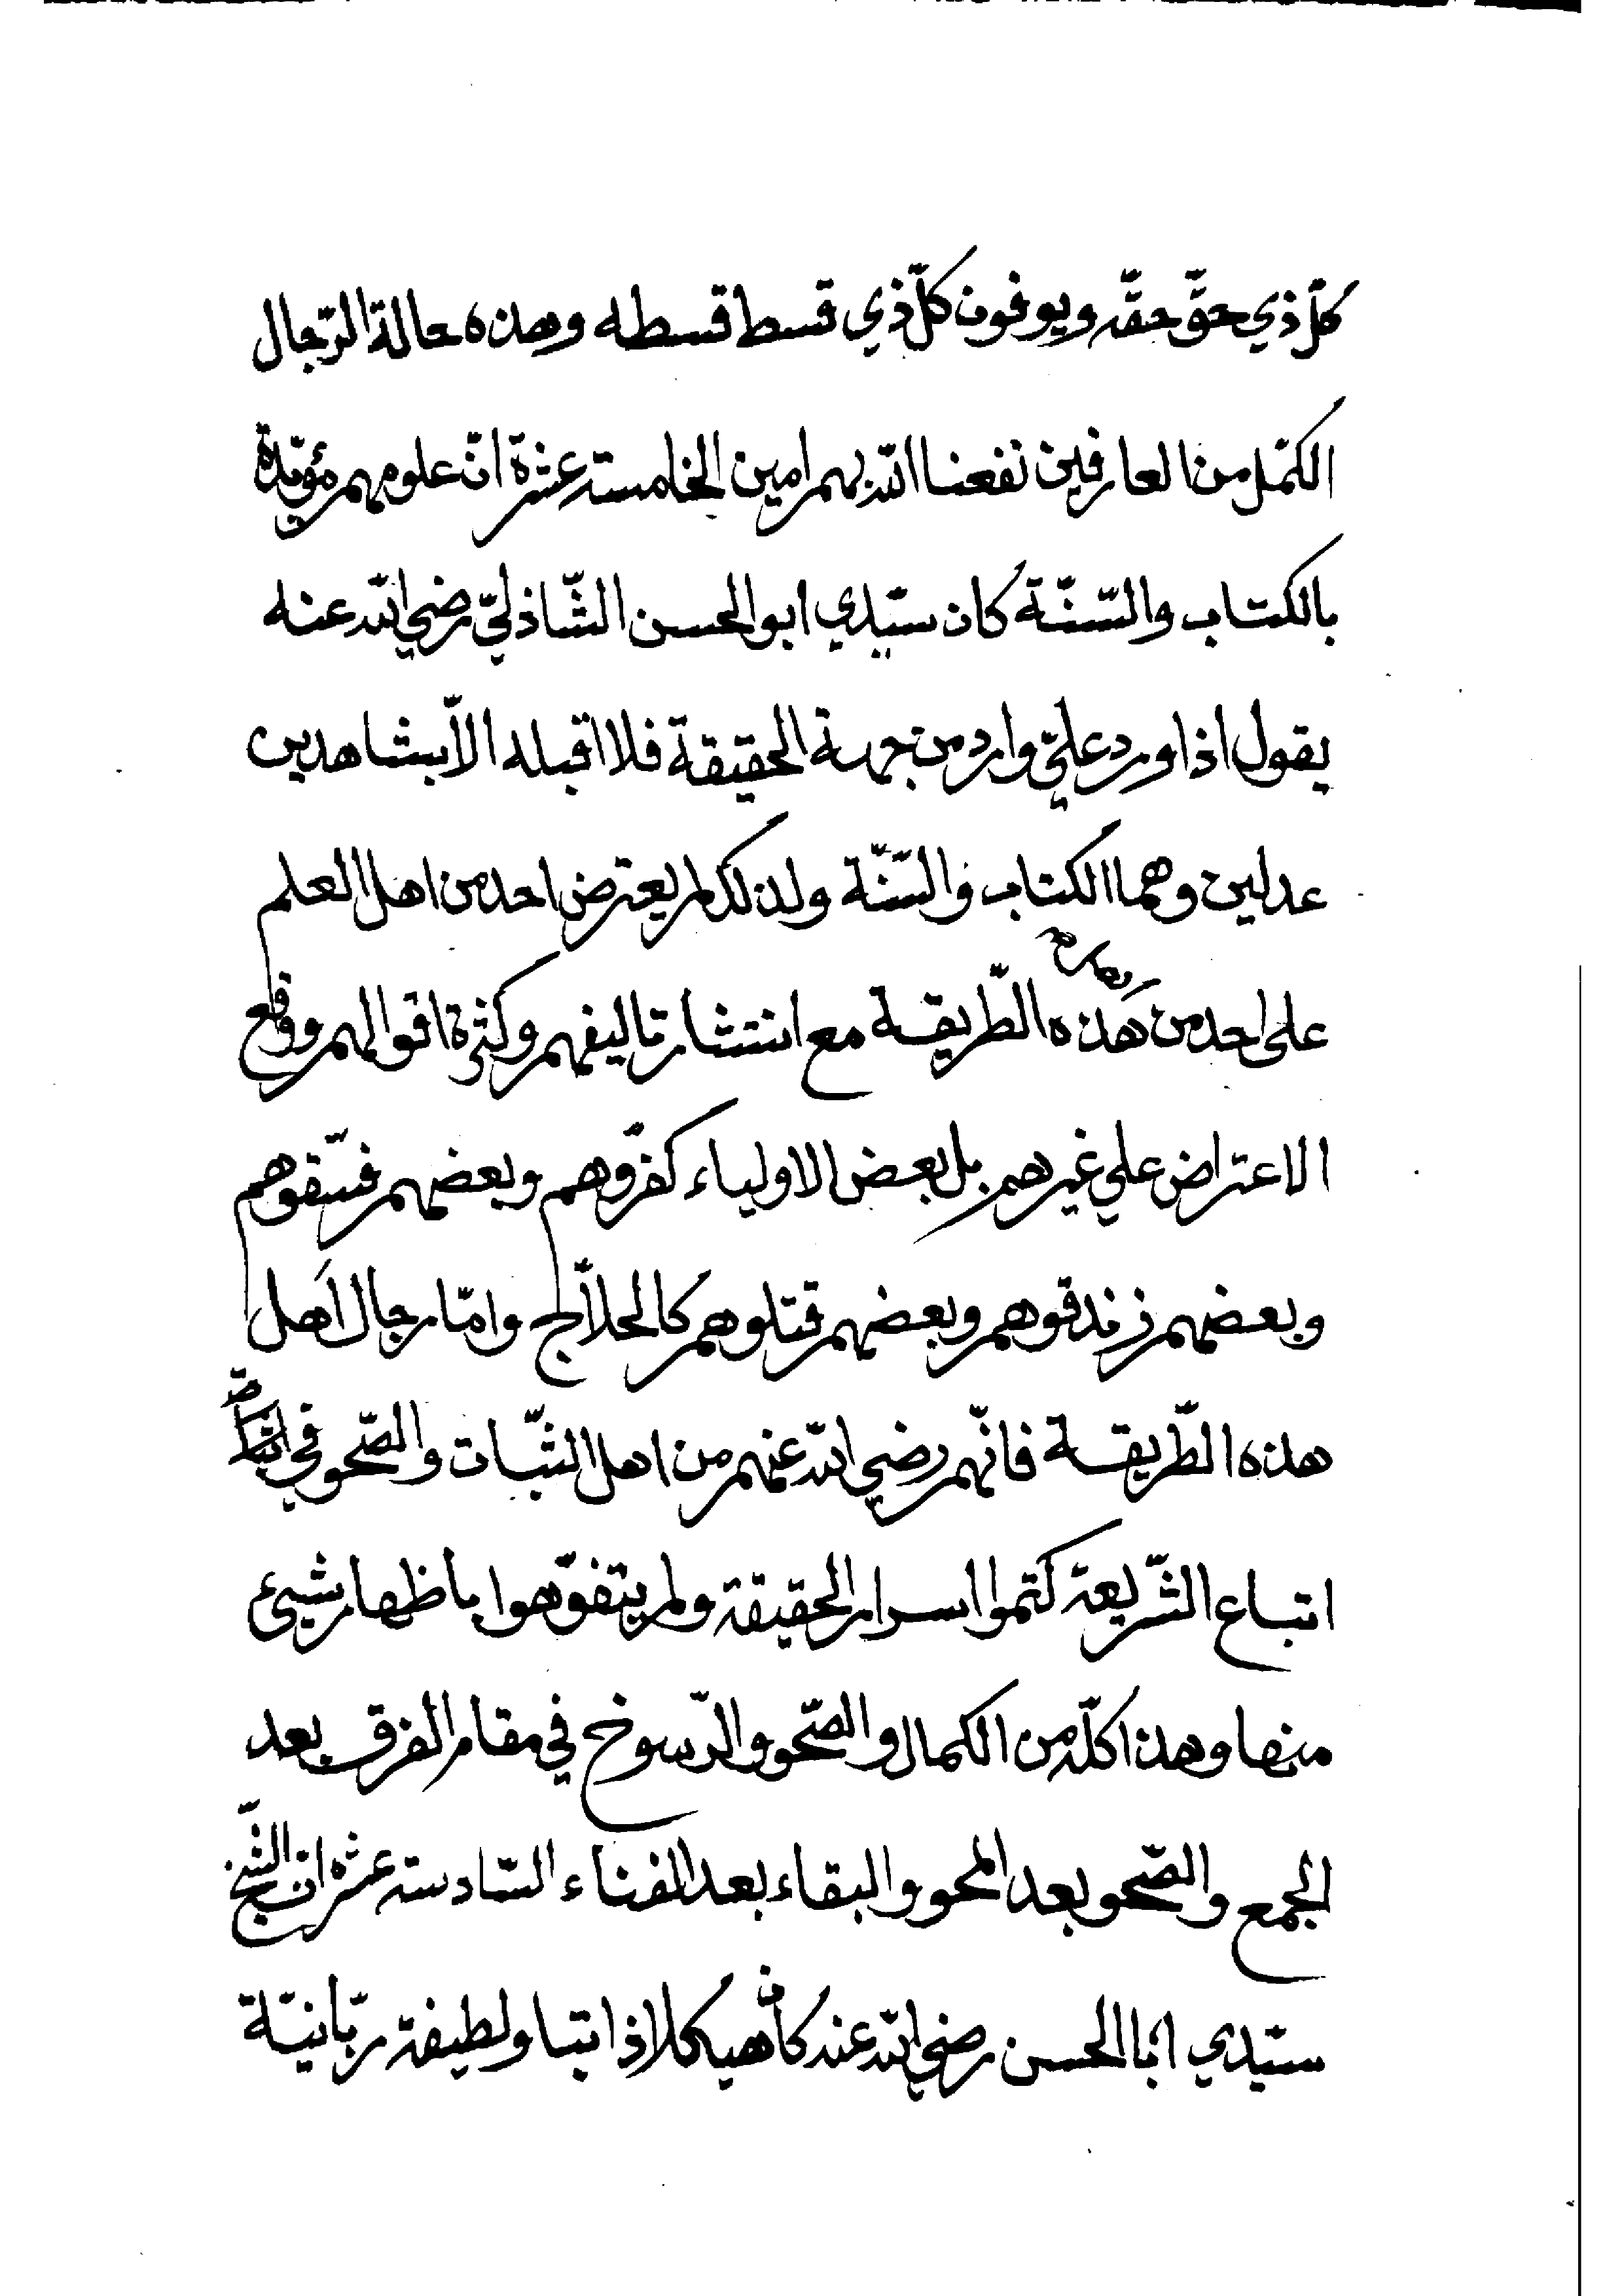 كلّ ذي حقّ حقّه ويوفون كلّ ذي قسط قسطه وهذه حالة الرّجال
الكمّل من العارفين نفعنا الله بهم امين الخامسة عشرة انّ علومهم مؤيّدة
بالكتاب والسّنّة كان سيّدي ابو الحسن الشّاذليّ رضي الله عنه
يقول اذا ورد عليّ وارد من جهة الحقيقة فلا اقبله الاّ بشاهدين
عدلين وهما الكتاب والسّنّة ولذلك لم يعترض احد من اهل العلم
على احد من هذه الطّريقة مع انتشار تاليفهم وكثرة اقوالهم ووقع
الاعتراض علي غيرهم بل بعض الاولياء كفّروهم وبعضهم فسّقوهم
وبعضهم زندقوهم وبعضهم قتلوهم كالحلاّج وامّا رجال اهل
هذه الطّريقة فانّهم رضي الله عنهم من اهل الثّبات والصّحو في
اتباع الشّريعة كتموا اسرار الحقيقة ولم يتفوّهوا باظهار شيئ
منها وهذا كلّه من الكمال والصّحو والرّسوخ في مقام الفرق بعد
الجمع والصّحو بعد المحو والبقاء بعد الفناء السّادسة عشرة ان الشّيخ
سيّدي ابا الحسن رضي الله عنه كان هيكلا ذاتيا ولطيفة ربّانيّة